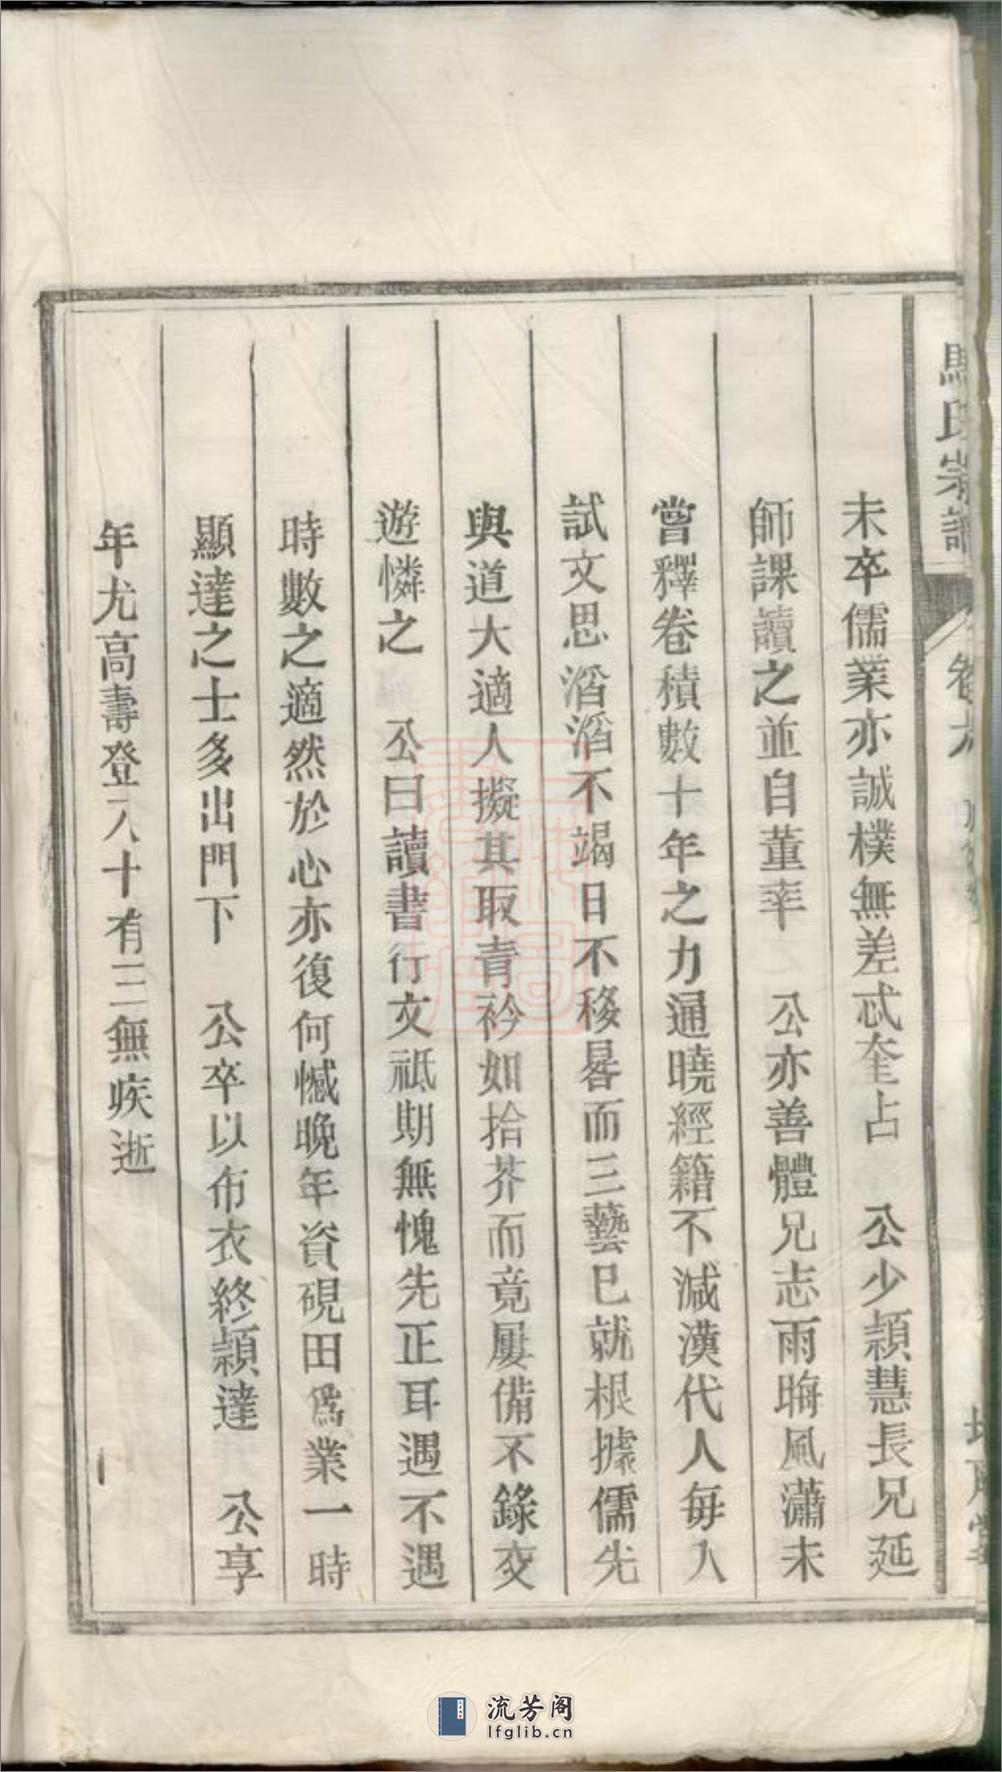 馬氏宗譜
未卒儒業亦誠樸無差忒奎占　公少穎慧長兄延
師課讀之並自董率　公亦善體兄志雨晦風瀟未
嘗釋卷積數十年之力通曉經籍不減漢代人每入
試文思滔滔不竭日不移晷而三藝已就根據儒先
與道大適人擬其取青衿如拾芥而竟屢備不錄交
遊憐之　公曰讀書行文祗期無愧先正耳遇不遇
時數之適然於心亦復何憾晚年資硯田爲業一時
顯達之士多出門下　公卒以布衣終穎達　公享
年尤高壽登八十有三無疾逝
流芳阁
lfglib.cn